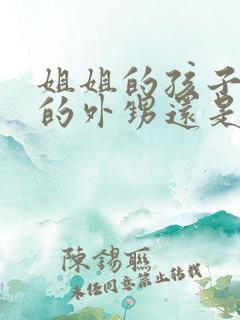 姐姐的孩子
的外甥還是
陳錫聯
未经同意禁止转载